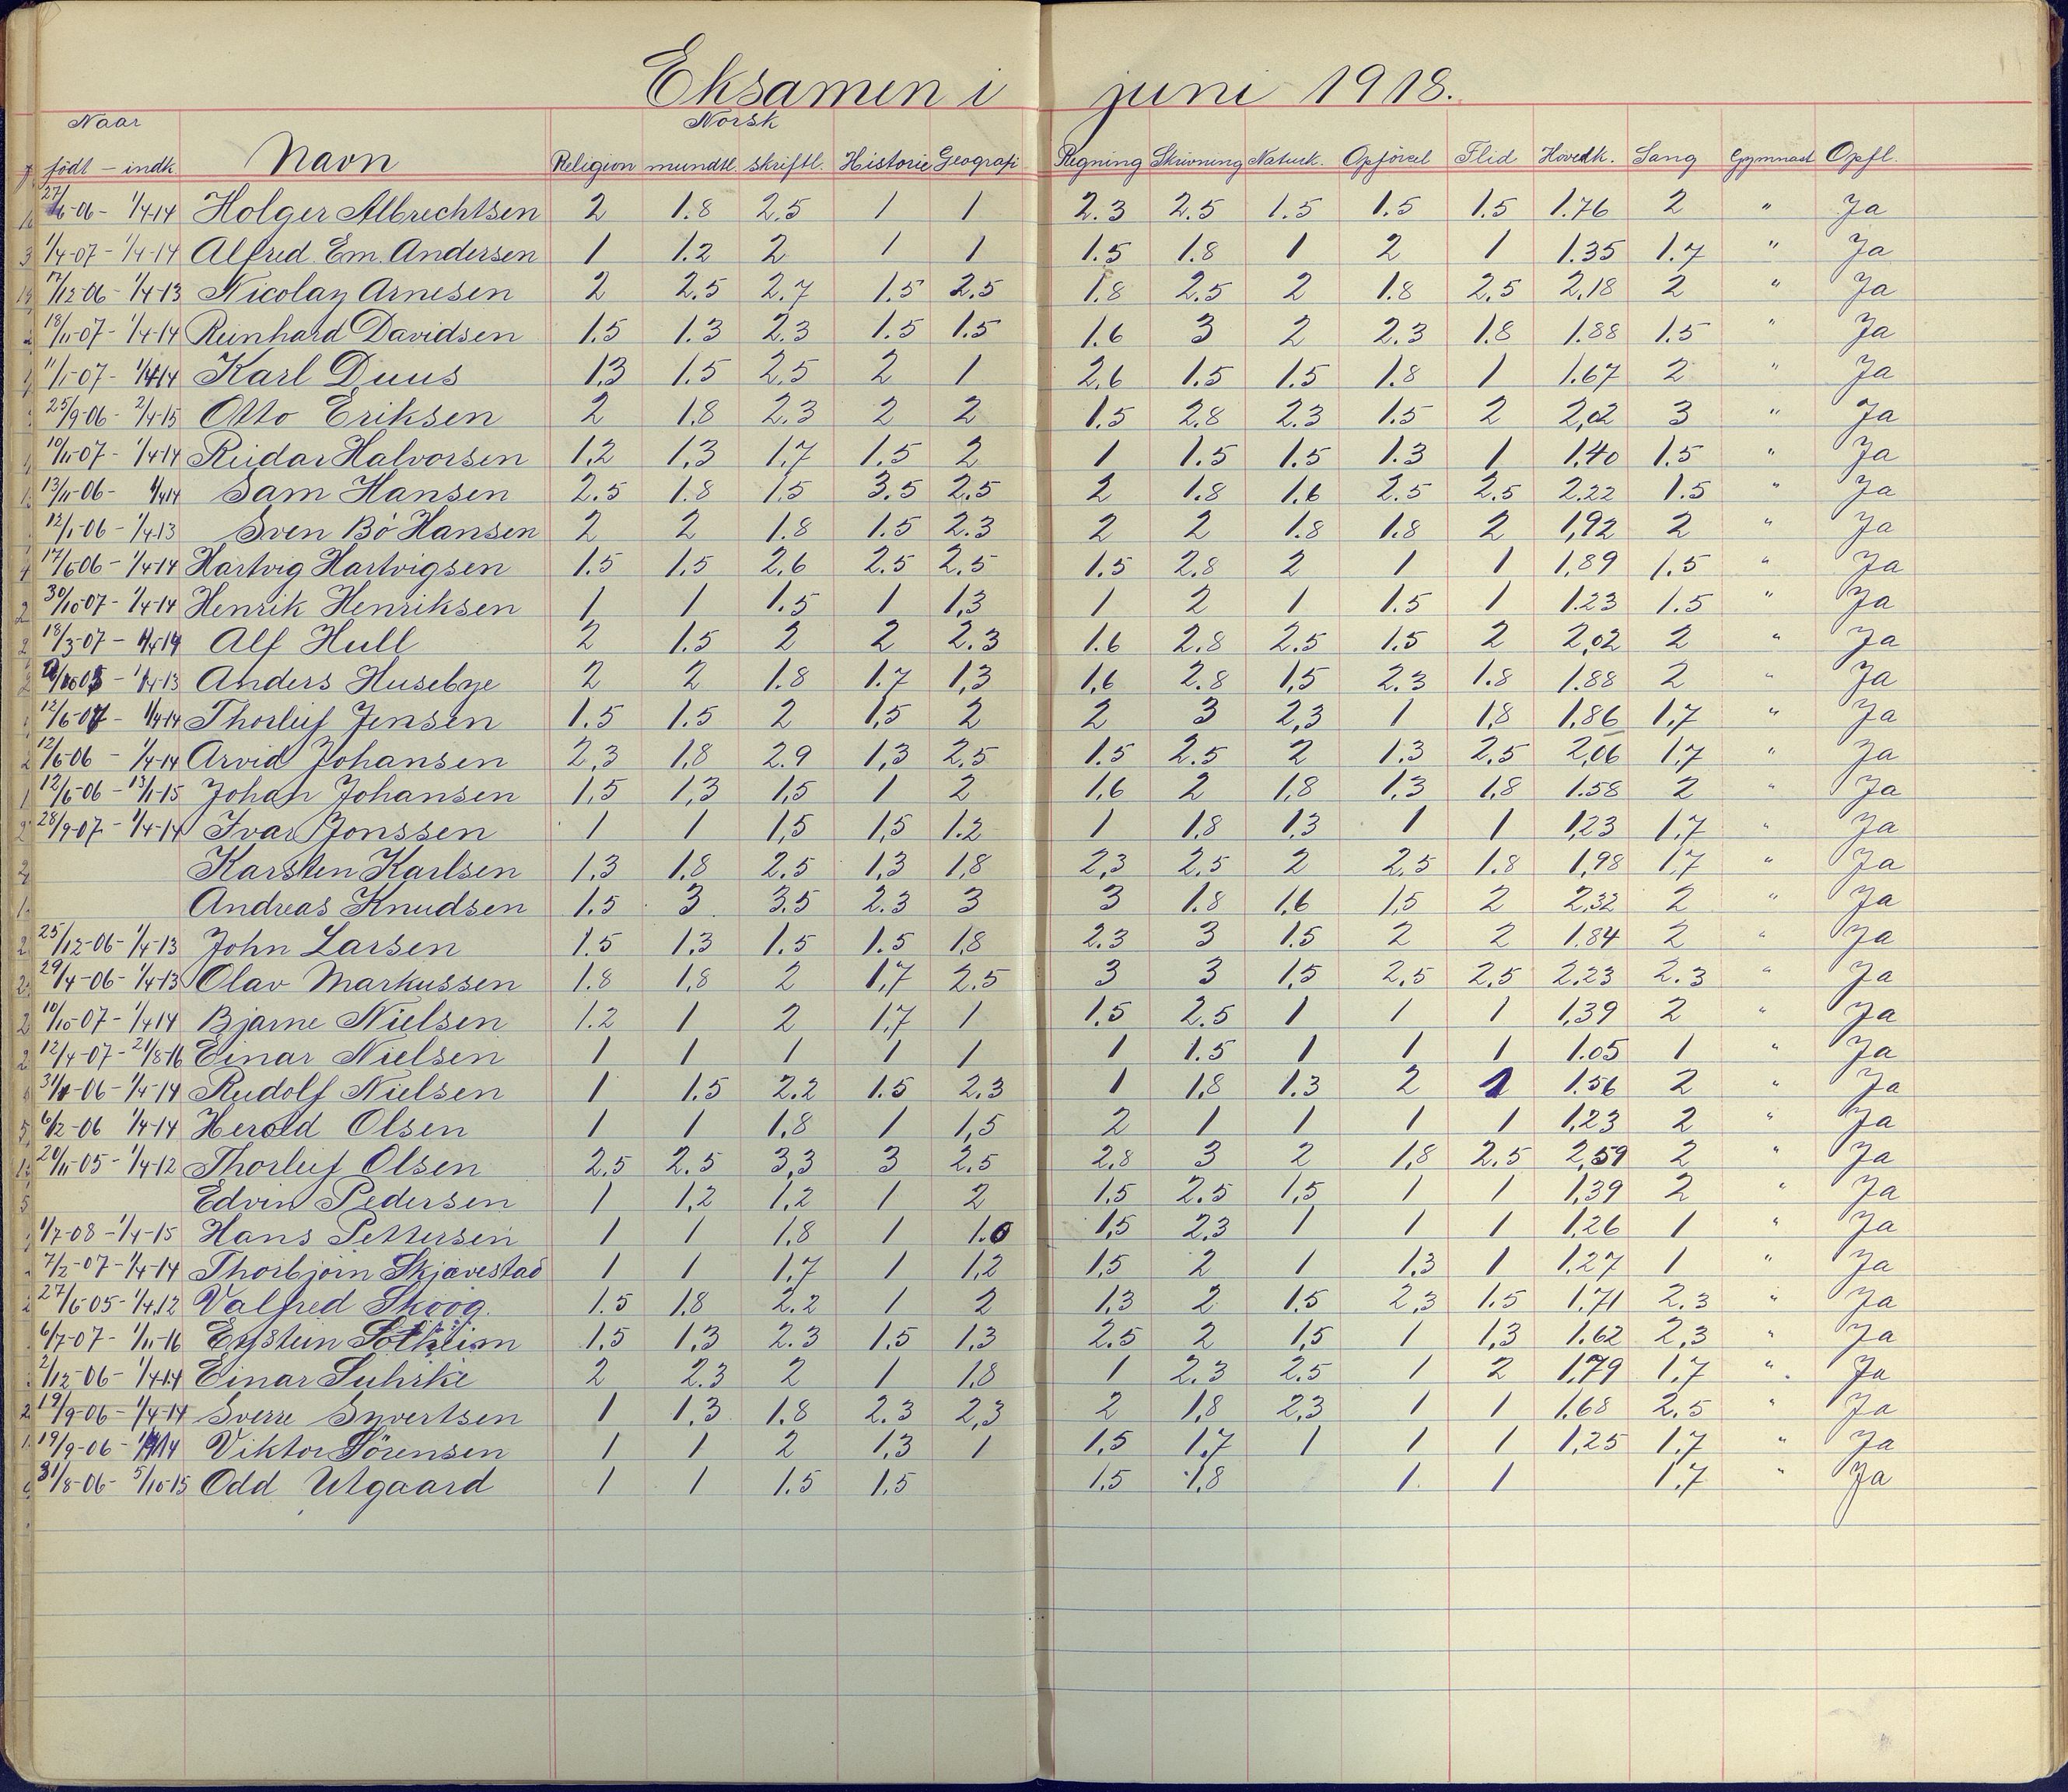 Eksamen i juni 1918.
Naar Norsk
födt - indk Navn Religion mundtl. skriftl. Historie Geografi Regning Skrivning Naturk. Opförsel Flid Hovedk. Sang Gymnast Opfl.
27/6-06- 1/4-14 Holger Albrechtsen 2 1.8 2.5 1 1 2.3 2.5 1.5 1.5 1.5 1.76 2 " Ja
1/4-07- 1/4-14 Alfred Em. Andersen 1 1.2 2 1 1 1.5 1.8 1 2 1 1.35 1.7 " Ja
17/12-06- 1/4-13 Nicolay Arnesen 2 2.5 2.7 1.5 2.5 1.8 2.5 2 1.8 2.5 2,18 2 " Ja
18/11-07- 1/4-14 Reinhard Davidsen 1.5 1.3 2.3 1.5 1.5 1.6 3 2 2.3 1.8 1.88 1.5 " Ja
11/1-07- 1/4-14 Karl Duus 1,3 1.5 2.5 2 1 2,6 1.5 1.5 1.8 1 1.67 2 " Ja
25/9-06- 2/4-15 Otto Eriksen 2 1.8 2.3 2 2 1.5 2.8 2.3 1.5 2 2,02 3 " Ja
10/11-07- 1/4-14 Reidar Halvorsen 1,2 1,3 1,7 1.5 2 1 1.5 1.5 1.3 1 1,40 1.5 " Ja
13/11-06- 1/4-14 Sam Hansen 2.5 1.8 1.5 3.5 2.5 2 1.8 1.6 2.5 2.5 2.22 1.5 " Ja
12/1-06- 1/4-13 Sven Bö Hansen 2 2 1.8 1.5 2.3 2 2 1.8 1.8 2 1,92 2 " Ja
17/6-06- 1/4-14 Hartvig Hartvigsen 1.5 1.5 2,6 2.5 2.5 1.5 2.8 2 1 1 1,89 1.5 " Ja
30/10-07- 1/4-14 Henrik Henriksen 1 1 1.5 1 1,3 1 2 1 1.5 1 1.23 1.5 " Ja
18/3-07- 1/4-14 Alf Hull 2 1.5 2 2 2.3 1.6 2.8 2.5 1.5 2 2,02 2 " Ja
Anders Husebye 2 2 1.8 1.7 1,3 1,6 2.8 1,5 2.3 1.8 1.88 2 " Ja
12/6-07- 1/4-14 Thorleif Jensen 1.5 1.5 2 1,5 2 2 3 2,3 1 1,8 1,86 1,7 " Ja
12/6-06- 1/4-14 Arvid Johansen 2,3 1,8 2.9 1,3 2,5 1.5 2.5 2 1.3 2,5 2,06 1.7 " Ja
12/6-06- 13/1-15 Johan Johansen 1,5 1,3 1,5 1 2 1,6 2 1,8 1.3 1,8 1.58 2 " Ja
28/9-07- 1/4-14 Ivar Jonssen 1 1 1,5 1,5 1.2 1 1,8 1,3 1 1 1,23 1,7 " Ja
Karsten Karlsen 1,3 1,8 2.5 1,3 1,8 2,3 2,5 2 2,5 1.8 1,98 1.7 " Ja
Andreas Knudsen 1.5 3 3.5 2.3 3 3 1.8 1,6 1,5 2 2,32 2 " Ja
25/12-06- 1/4-13 John Larsen 1.5 1,3 1.5 1.5 1,8 2.3 3 1.5 2 2 1.84 2 " Ja
29/4-06- 1/4-13 Olav Markussen 1.8 1,8 2 1,7 2.5 3 3 1,5 2,5 2,5 2.23 2.3 " Ja
10/10-07- 1/4-14 Bjarne Nielsen 1.2 1 2 1,7 1 1.5 2.5 1 1 1 1,39 2 " Ja
12/4-07- 21/8-16 Einar Nielsen 1 1 1 1 1 1 1.5 1 1 1 1.05 1 " Ja
Rudolf Nielsen 1 1.5 2.2 1.5 2.3 1 1,8 1.3 2 1 1.56 2 " Ja
6/2-06 1/4-14 Herold Olsen 1 1 1,8 1 1,5 2 1 1 1 1 1,23 2 " Ja
20/11-05- 1/4-12 Thorleif Olsen 2,5 2.5 3,3 3 2.5 2,8 3 2 1,8 2.5 2,59 2 " Ja
Edvin Pedersen 1 1,2 1,2 1 2 1,5 2.5 1,5 1 1 1,39 2 " Ja
1/7-08- 1/4-15 Hans Pettersen 1 1 1,8 1 1.0 1,5 2,3 1 1 1 1,26 1 " Ja
7/2-07- 1/4-14 Thorbjörn Skjævestad 1 1 1,7 1 1,2 1,5 2 1 1,3 1 1,27 1 " Ja
27/6-05- 1/4.12 Valfred Skoog. 1.5 1,8 2.2 1 2 1,3 2 1.5 2,3 1.5 1.71 2.3 " Ja
6/7-07- 1/11-16 Eystein Solheim 1.5 1,3 2.3 1.5 1,3 2.5 2 1,5 1 1,3 1.62 2,3 " Ja
2/12-06- 1/4-14 Einar Suhrke 2 2.3 2 1 1,8 1 2.3 2.5 1 2 1,79 1.7 " Ja
19/9-06- 1/4-14 Sverre Syvertsen 1 1,3 1.8 2.3 2,3 2 1,8 2,3 1 1 1.68 2.5 " Ja
19/9-06- 1/4-14 Viktor Sörensen 1 1 2 1,3 1 1,5 1,7 1 1 1 1,25 1.7 " Ja
31/8-06- 5/10-15 Odd Utgaard 1 1 1.5 1.5 1.5 1.8 1 1 1.7 " Ja